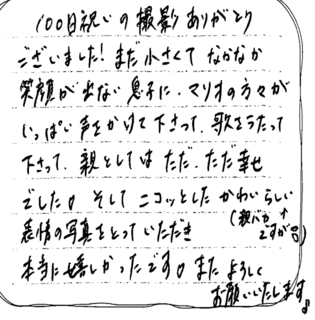 100日祝いの撮影ありがとう
ございました！まだ小さくてなかなか
笑顔が出ない息子に、マリオの方々が
いっぱい声をかけて下さって、歌をうたって
下さって、親としてはただ、ただ幸せ
でした。そしてニコッとしたかわいらしい
(親バカ↑
ですが
表情の写真をとっていただき
本当に嬉しかったです。またよろしく
お願いいたします♪